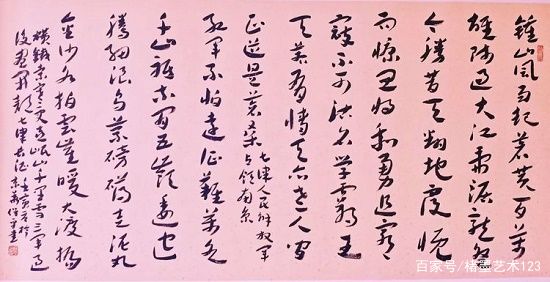 鍾山風雨起蒼黃百萬
雄師過大江虎踞龍盤
今勝昔天翻地覆慨
而慷宜將剩勇追窮
寇不可沽名學霸王
天若有情天亦老人間
正道是滄桑
七律人民解放軍
占領南京
紅軍不怕遠征難萬水
千山只等閑五嶺逶迤
騰細浪烏蒙磅礴走泥丸
金沙水拍雲崖暖大渡橋
橫鐵索寒更喜岷山千里雪三軍過
後盡開顏七律長征壬寅
百家号/楮墨艺术123